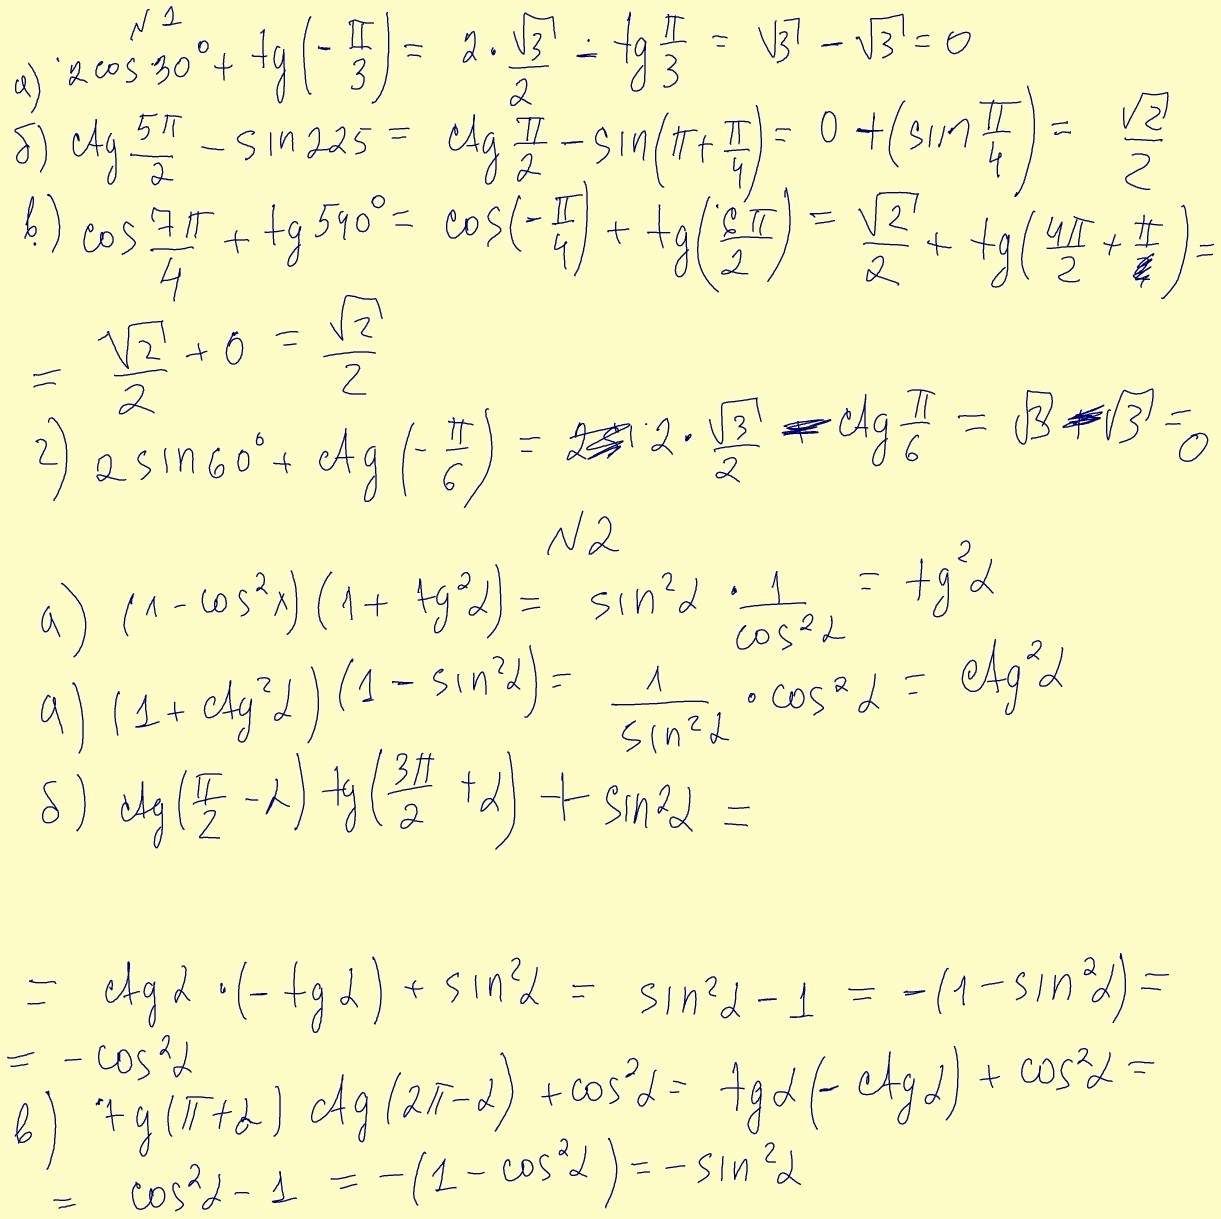 N1
а) 2cos30° + tg(-π/3) = 2·√3/2 - tg π/3 = √3 - √3 = 0
б) ctg 5π/2 - sin225 = ctg π/2 - sin(π+π/4) = 0 + (sin π/4) = √2/2
в) cos 7π/4 + tg 540° = cos(-π/4) + tg(6π/2) = √2/2 + tg(4π/2 + π) =
= √2/2 + 0 = √2/2
г) 2sin60° + ctg(-π/6) = 2·√3/2 - ctg π/6 = √3 - √3 = 0
N2
а) (1-cos²x)(1+tg²α) = sin²α · 1/cos²α = tg²α
а) (1+ctg²α)(1-sin²α) = 1/sin²α · cos²α = ctg²α
б) ctg(π/2 - α) tg(3π/2 + α) + sin²α =
= ctgα·(-tgα) + sin²α = sin²α - 1 = -(1-sin²α) =
= -cos²α
в) tg(π+α) ctg(2π-α) + cos²α = tgα(-ctgα) + cos²α =
= cos²α - 1 = -(1-cos²α) = -sin²α